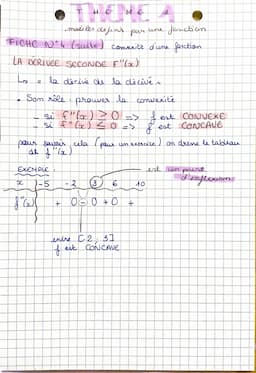 THÈME 1
modèles définis par une fonction
FICHE N°4 (suite) convexité d'une fonction
LA DÉRIVÉE SECONDE f''(x)
↳ = la dérivée de la dérivée.
• Son rôle : prouver la convexité
- si f''(x) ≥ 0 => f est CONVEXE
- si f''(x) ≤ 0 => f est CONCAVE
pour savoir cela (pour un exercice) on dresse le tableau
de f''(x)
EXEMPLE :
est un point
d'inflexion
x | -5 -2 3 6 10
f''(x) | + 0 - 0 + 0 +
entre [-2, 3]
f est CONCAVE